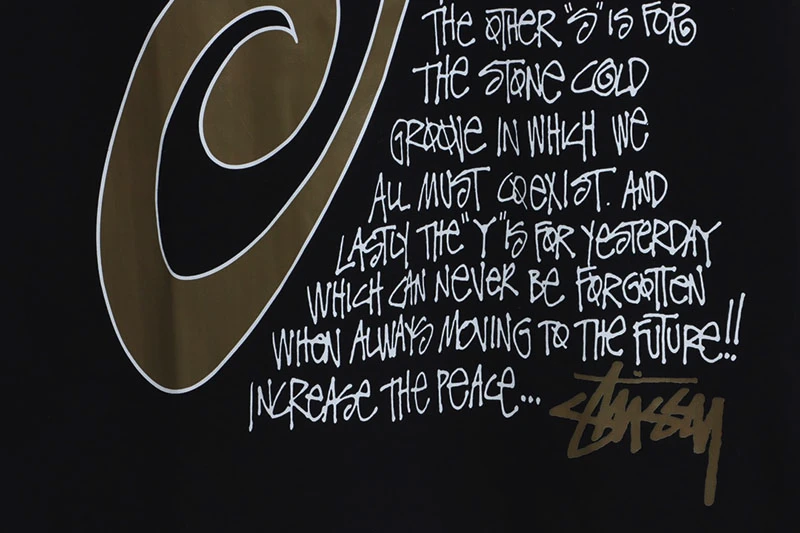 THE OTHER "S" IS FOR
THE STONE COLD
GROOVE IN WHICH WE
ALL MUST COEXIST. AND
LASTLY THE "Y" IS FOR YESTERDAY
WHICH CAN NEVER BE FORGOTTEN
WHEN ALWAYS MOVING TO THE FUTURE!!
INCREASE THE PEACE...
STÜSSY